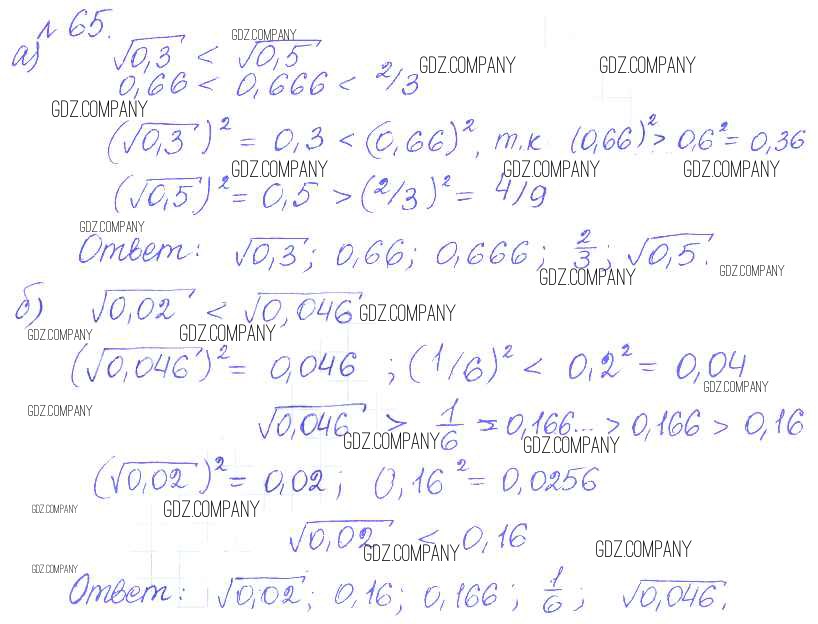 № 65.
GDZ.COMPANY
а) √0,3 < √0,5
GDZ.COMPANY GDZ.COMPANY
0,66 < 0,666 < 2/3
GDZ.COMPANY
(√0,3)² = 0,3 < (0,66)², т.к (0,66)² > 0,6² = 0,36
GDZ.COMPANY GDZ.COMPANY GDZ.COMPANY
(√0,5)² = 0,5 > (2/3)² = 4/9
GDZ.COMPANY
Ответ: √0,3; 0,66; 0,666; 2/3; √0,5.
GDZ.COMPANY GDZ.COMPANY
б) √0,02 < √0,046 GDZ.COMPANY
GDZ.COMPANY GDZ.COMPANY
(√0,046)² = 0,046 ; (1/6)² < 0,2² = 0,04
GDZ.COMPANY
GDZ.COMPANY
√0,046 > 1/6 = 0,166... > 0,166 > 0,16
GDZ.COMPANY GDZ.COMPANY
(√0,02)² = 0,02; 0,16² = 0,0256
GDZ.COMPANY GDZ.COMPANY
√0,02 < 0,16
GDZ.COMPANY GDZ.COMPANY
GDZ.COMPANY
Ответ: √0,02; 0,16; 0,166; 1/6; √0,046.